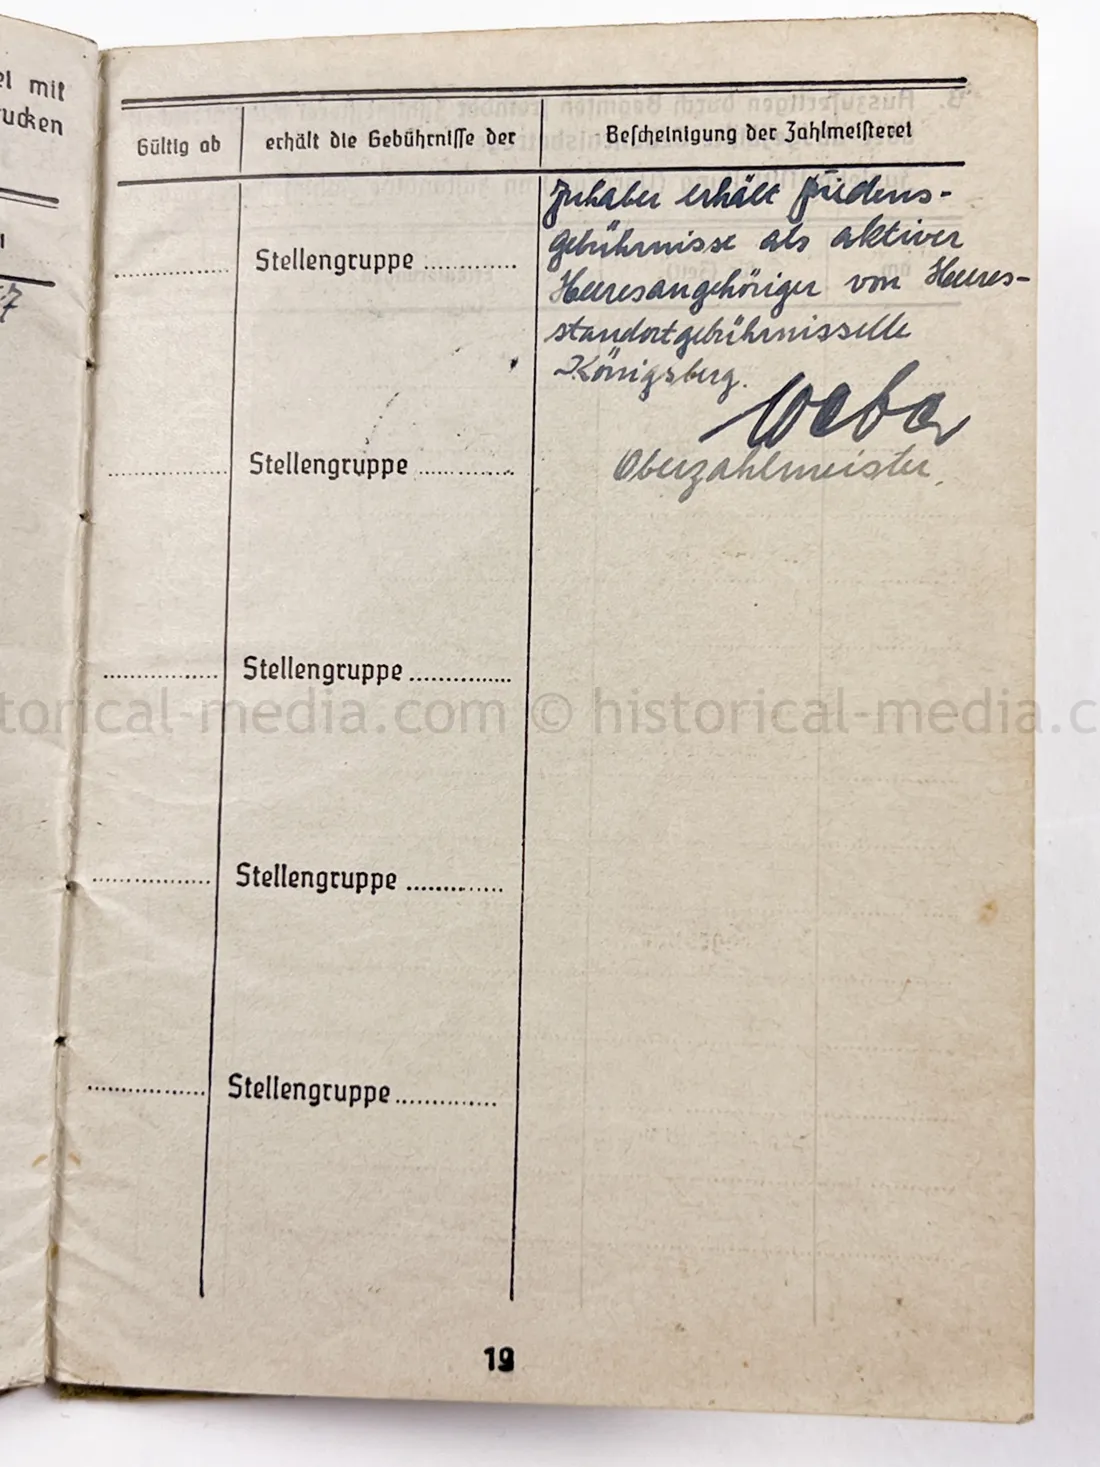 el mit
ucken
Gültig ab
erhält die Gebührnisse der
Bescheinigung der Zahlmeisterei
Inhaber erhält Friedens-
gebührnisse als aktiver
Heeresangehöriger von Heeres-
standortgebührnisselle
Königsberg.
Weber
Oberzahlmeister.
Stellengruppe
Stellengruppe
Stellengruppe
torical-media.com © historical-media.c
Stellengruppe
Stellengruppe
19